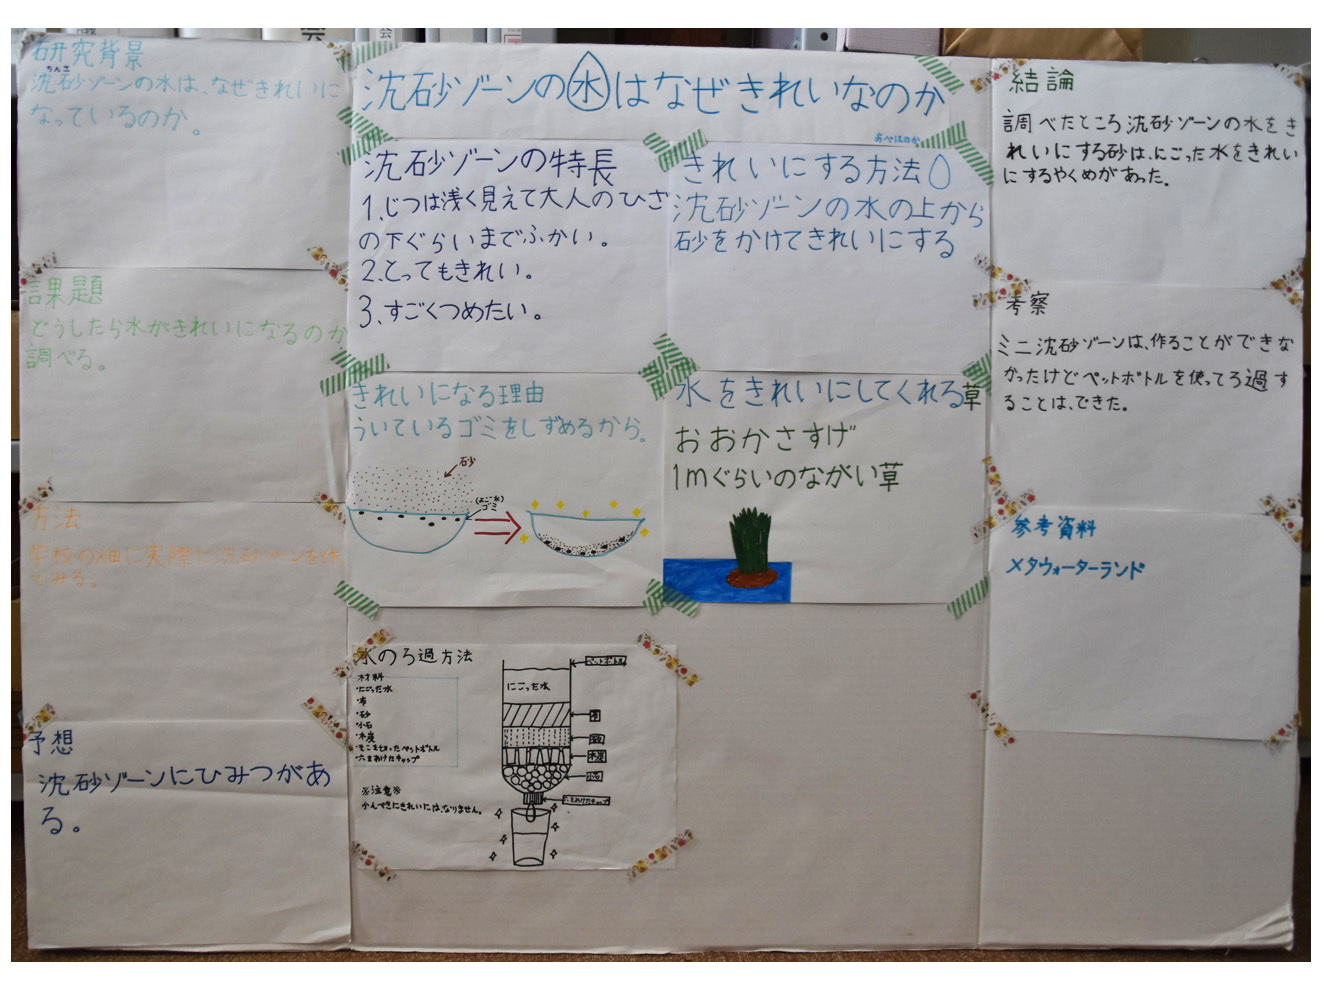 研究背景
ちんさ
沈砂ゾーンの水は、なぜきれいに
なっているのか。
課題
どうしたら水がきれいになるのか
調べる。
方法
学校の畑に実際に沈砂ゾーンを作っ
てみる。
予想
沈砂ゾーンにひみつがあ
る。
沈砂ゾーンの水はなぜきれいなのか
沈砂ゾーンの特長
1、じつは浅く見えて大人のひざ
の下ぐらいまでふかい。
2、とってもきれい。
3、すごくつめたい。
きれいにする方法
沈砂ゾーンの水の上から
砂をかけてきれいにする
きれいになる理由
ういているゴミをしずめるから。
砂
ゴミ
水をきれいにしてくれる草
おおかさすげ
1mぐらいのながい草
水のろ過方法
材料
・にごった水
・布
・砂
・小石
・木炭
・そこを切ったペットボトル
・穴をあけたキャップ
※注意※
かんぺきにきれいには、なりません。
ペットボトル
にごった水
布
木炭
小石
穴をあけたキャップ
結論
調べたところ沈砂ゾーンの水をき
れいにする砂は、にごった水をきれい
にするやくめがあった。
考察
ミニ沈砂ゾーンは、作ることができな
かったけどペットボトルを使ってろ過す
ることは、できた。
参考資料
メタウォーターランド